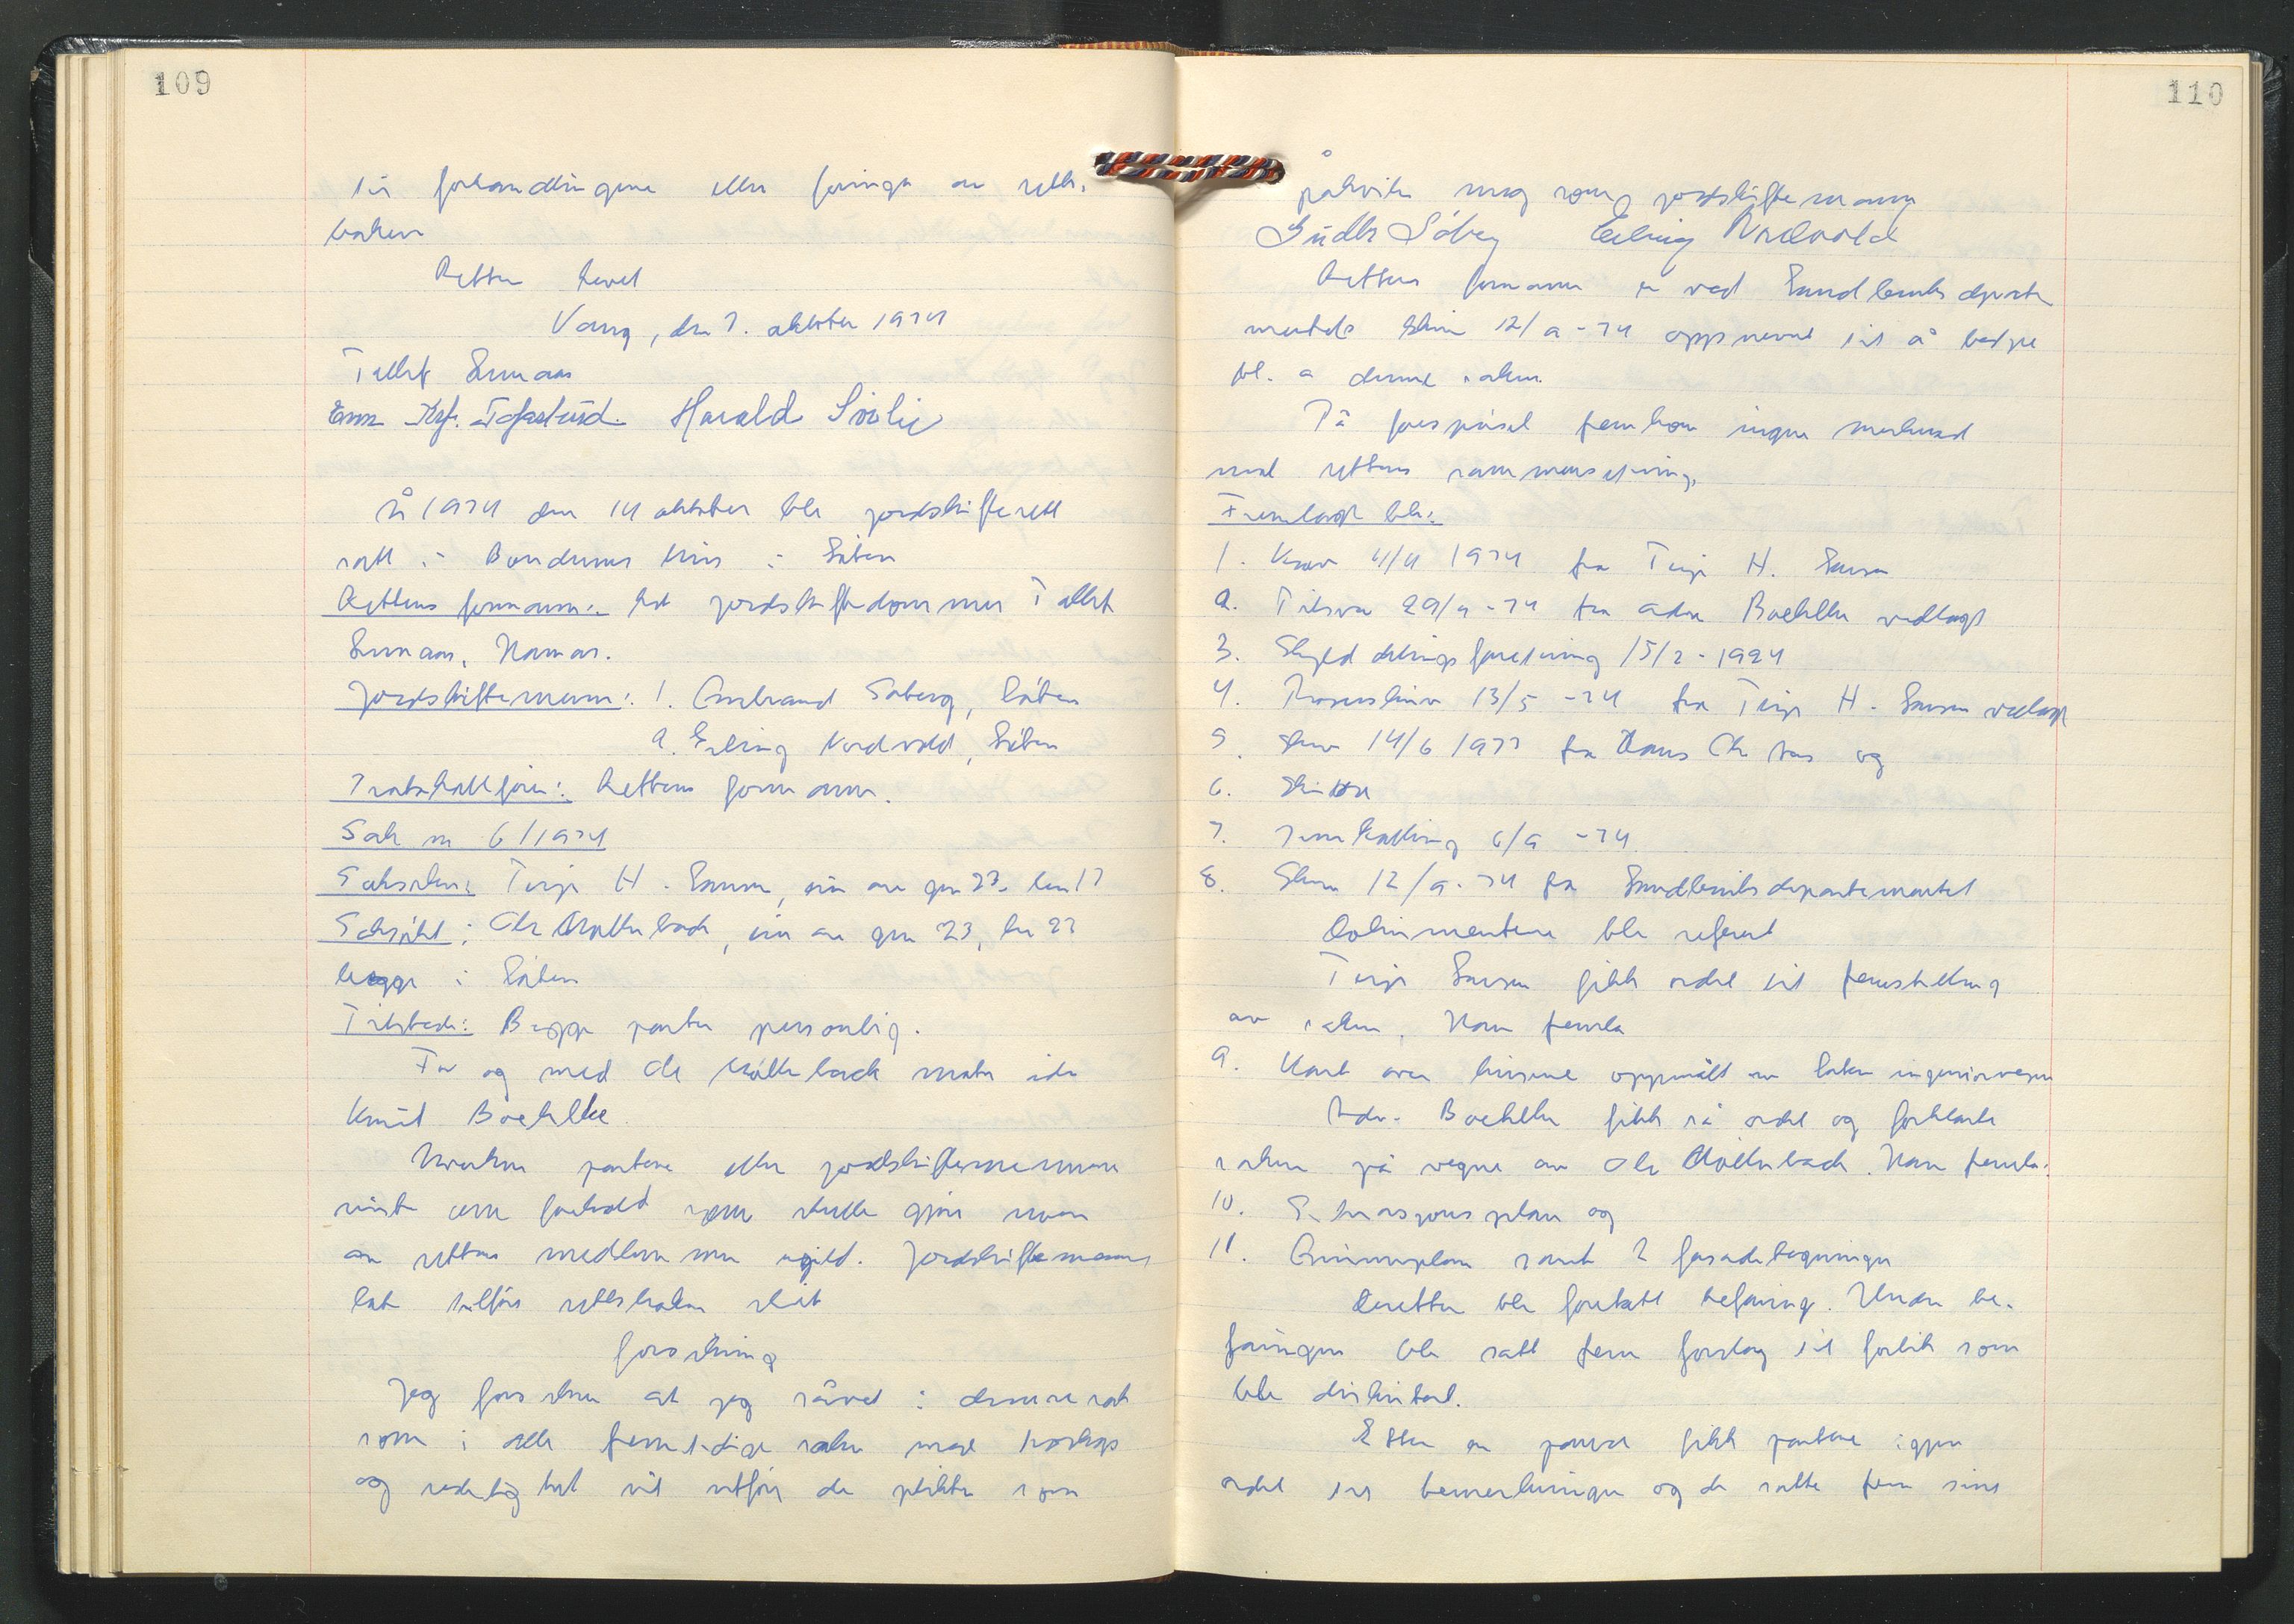 109
til forhandlingene eller føringa av retts-
boken
Retten hevet
Vang, den 7. oktober 1974
Harald
År 1974 den 14 oktober ble jordskifterett
satt i Bondenes Hus i Løten
Rettens formann: Ast jordskiftedommer
Hamar.
Jordskiftemenn: 1. Gudbrand Søberg, Løten
2. Erling Nordvold, Løten
Protokollfører: Rettens formann.
Sak nr 6/1974
Saksøker: Terje H. Larsen, eier av gnr 23 bnr 17
Saksøkt: Ole Møllerback, eier av gnr 23, bnr 27
begge i Løten
Tilstede: Begge parter personlig.
For og med Ole Møllerback møter adv
Knut Boehlke
Hverken partene eller jordskiftemennene
visste om forhold som skulle gjøre noen
av rettens medlemmer ugild. Jordskiftemennene
lot tilføre rettsboken slik
forsikring
Jeg forsikrer at jeg såvel i denne sak
som i alle fremtidige saker med troskap
og redelighet vil utføre de plikter som
110
påhviler meg som jordskiftemann
Erling Nordvold
Rettens formann er ved Landbruksdeparte
mentets skriv 12/9-74 oppnevnt til å betjene
bl. a denne saken.
På forespørsel fremkom ingen merknad
med rettens sammensetning.
Fremlagt ble:
1. Krav 4/4 1974 fra Terje H. Larsen
2. Tilsvar 29/4-74 fra adv Boehlke vedlagt
3. Skylddelingsforretning 15/2-1924
4. Prosesskriv 13/5-74 fra Terje H. Larsen vedlagt
5. Skriv 14/6 1973 fra Hans Chr og
6. Skisse
7. Innkalling 6/9-74
8. Skriv 12/9-74 fra Landbruksdepartementet
Dokumentene ble referert
Terje Larsen fikk ordet til fremstilling
av saken. Han fremla
9. Kart over linjene oppmålt av Løten ingeniørvesen
Adv. Boehlke fikk så ordet og forklarte
saken på vegne av Ole Møllerback. Han fremla:
10. Situasjonsplan og
11. Grunnplan samt 2 fasadetegninger
Deretter ble foretatt befaring. Under be-
faringen ble satt frem forslag til forlik som
ble diskutert.
Etter en pause fikk partene igjen
ordet til bemerkninger og de satte frem sine